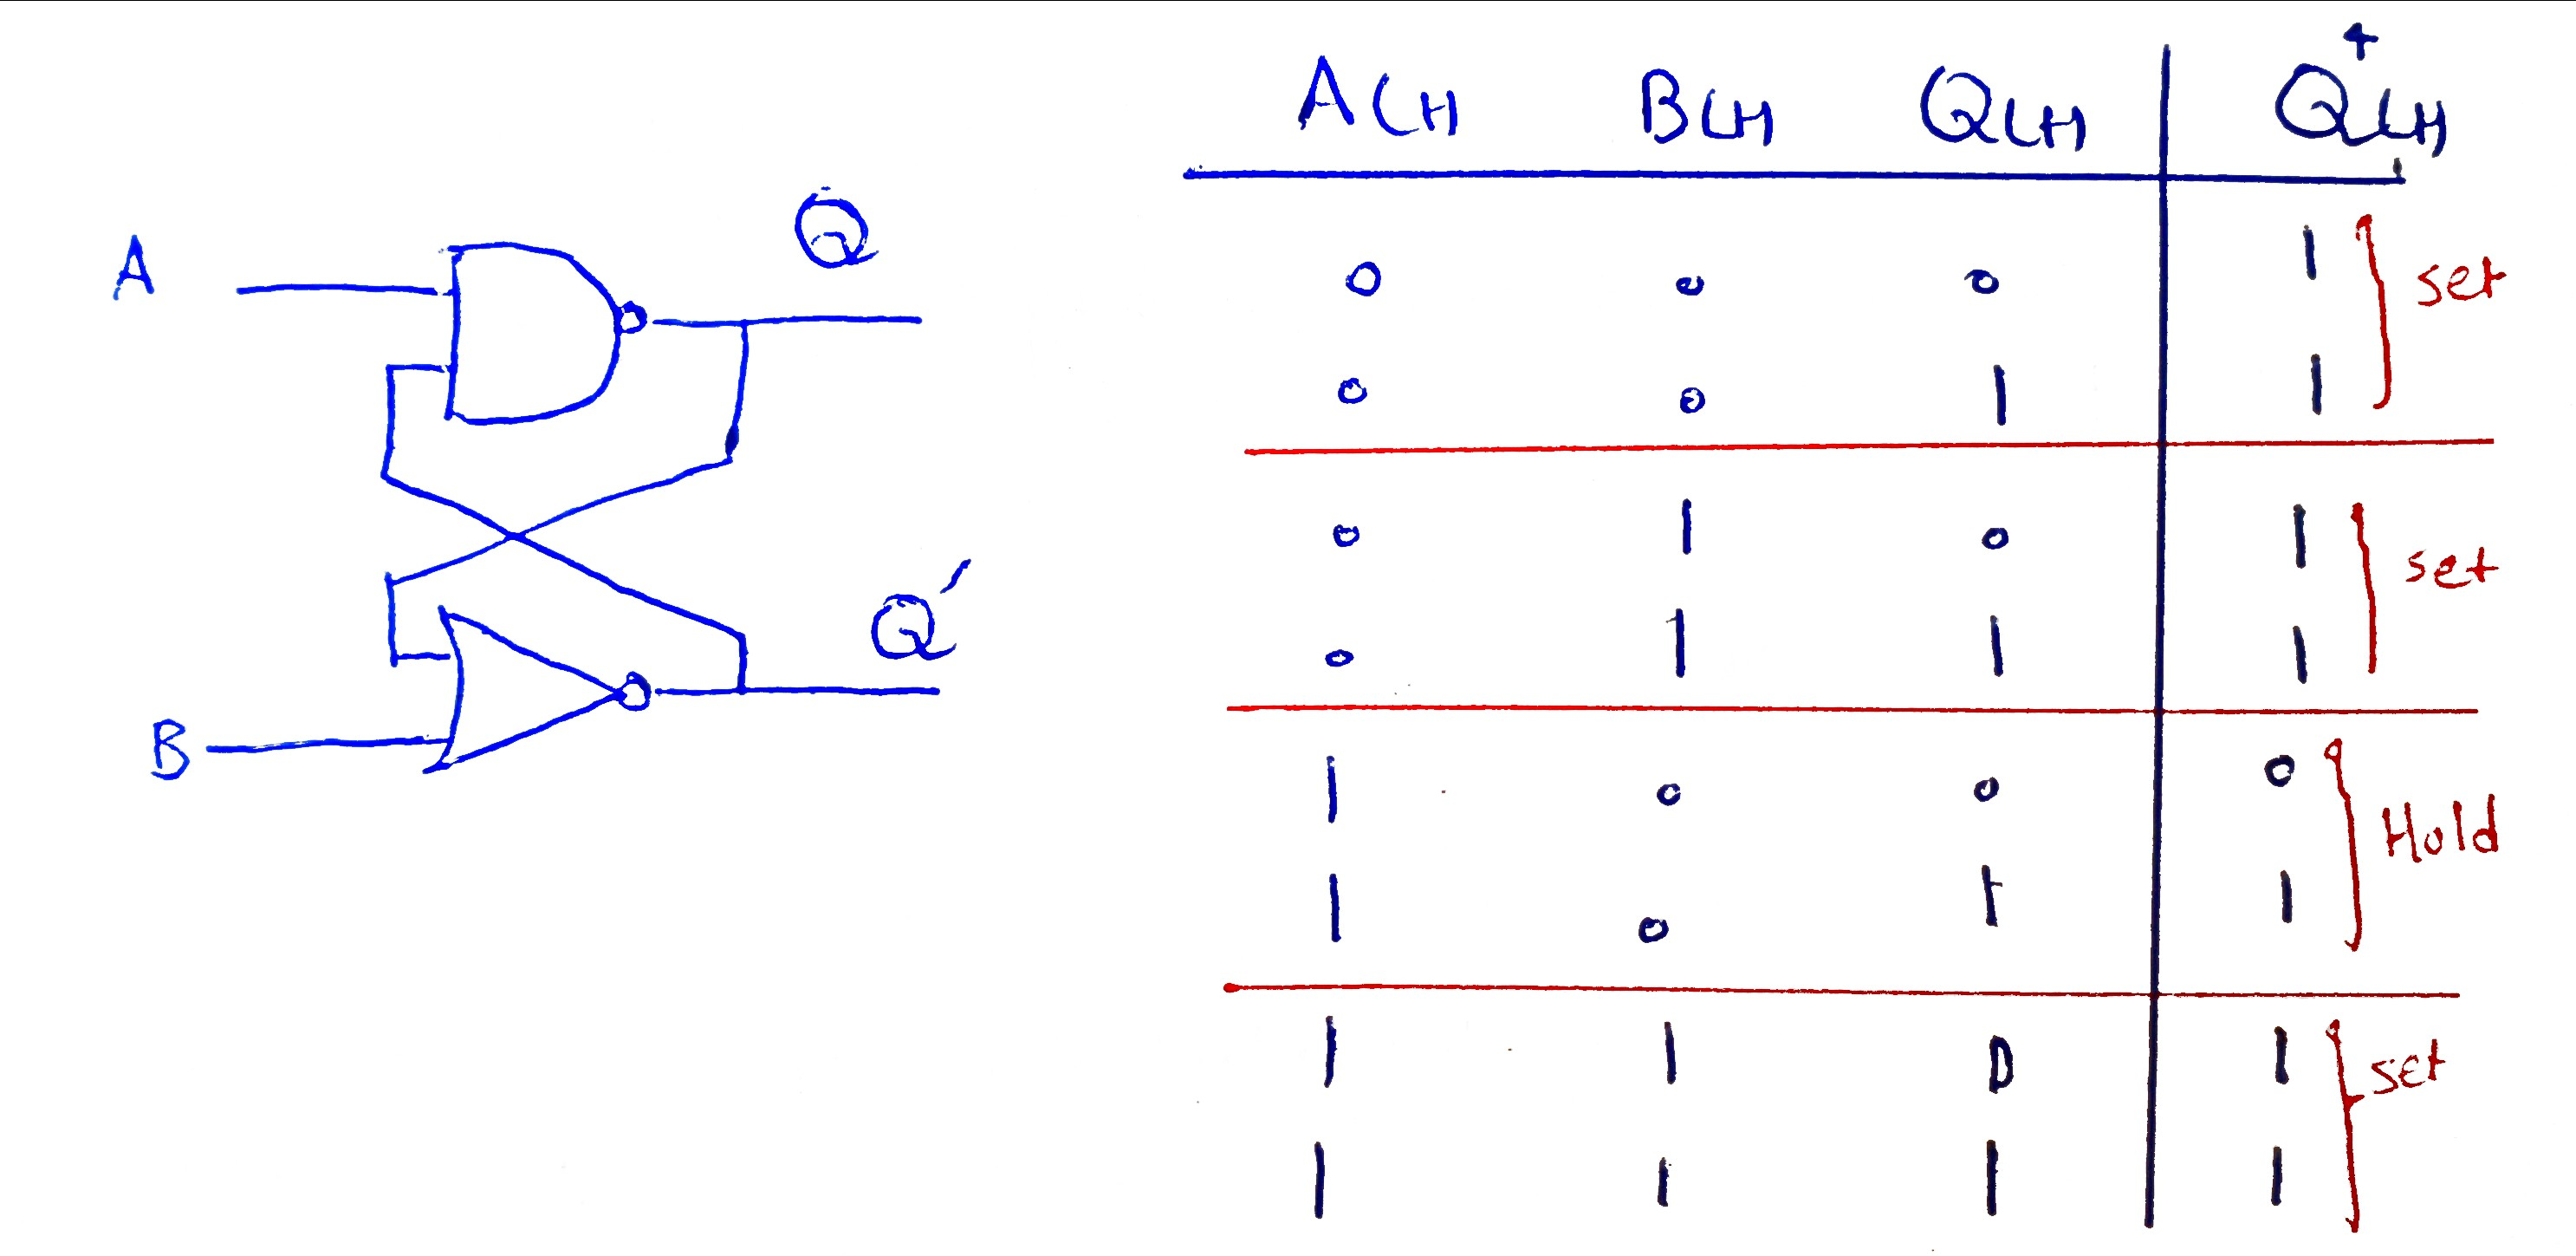 A
Q
Q'
B
A(H B(H Q(H Q+(H
0 0 0 1 set
0 0 1 1
0 1 0 1 set
0 1 1 1
1 0 0 0 Hold
1 0 1 1
1 1 0 1 set
1 1 1 1